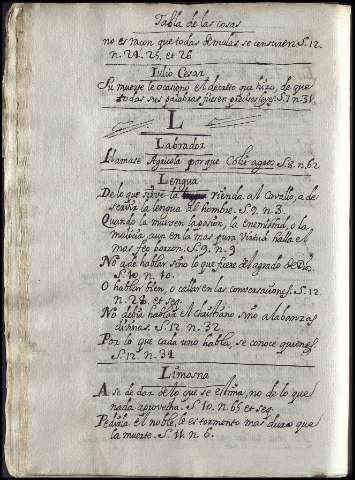 Tabla de las cosas
no es racon que todas se censuren. S. 12.
n. 24. 25, et 26
Iulio Cesar
Su muerte le ocasiono el decreto que hizo, de que
todas sus palabras fuesen precisas leyes. S. 7 n. 31.
L
Labrador
Llamase Agricola porque Colit agros. S. 8. n. 62
Lengua
De lo que sirve la rienda al Cavallo, a de
servir la lengua al hombre. S. 9. n. 3.
Quando la mueven la pasion, la enemistad, o la
malicia, aun en la mas pura virtud halla el
mas feo borron. S. 9. n. 9
No a de hablar sino lo que fuere del agrado de Dios.
S. 10. n. 10.
O hablar bien, o callar en las conversaciones. S. 12.
n. 28 et seq.
No debia hablar el Christiano sino alabanzas
divinas. S. 12. n. 32.
Por lo que cada uno habla, se conoce quien es
S. 12. n. 34
Limosna
A se de dar de lo que se estima, no de lo que
nada aprovecha. S. 10. n. 65 et seq.
Pedirla el noble, le es tormento mas duro que
la muerte. S. 11. n. 6.